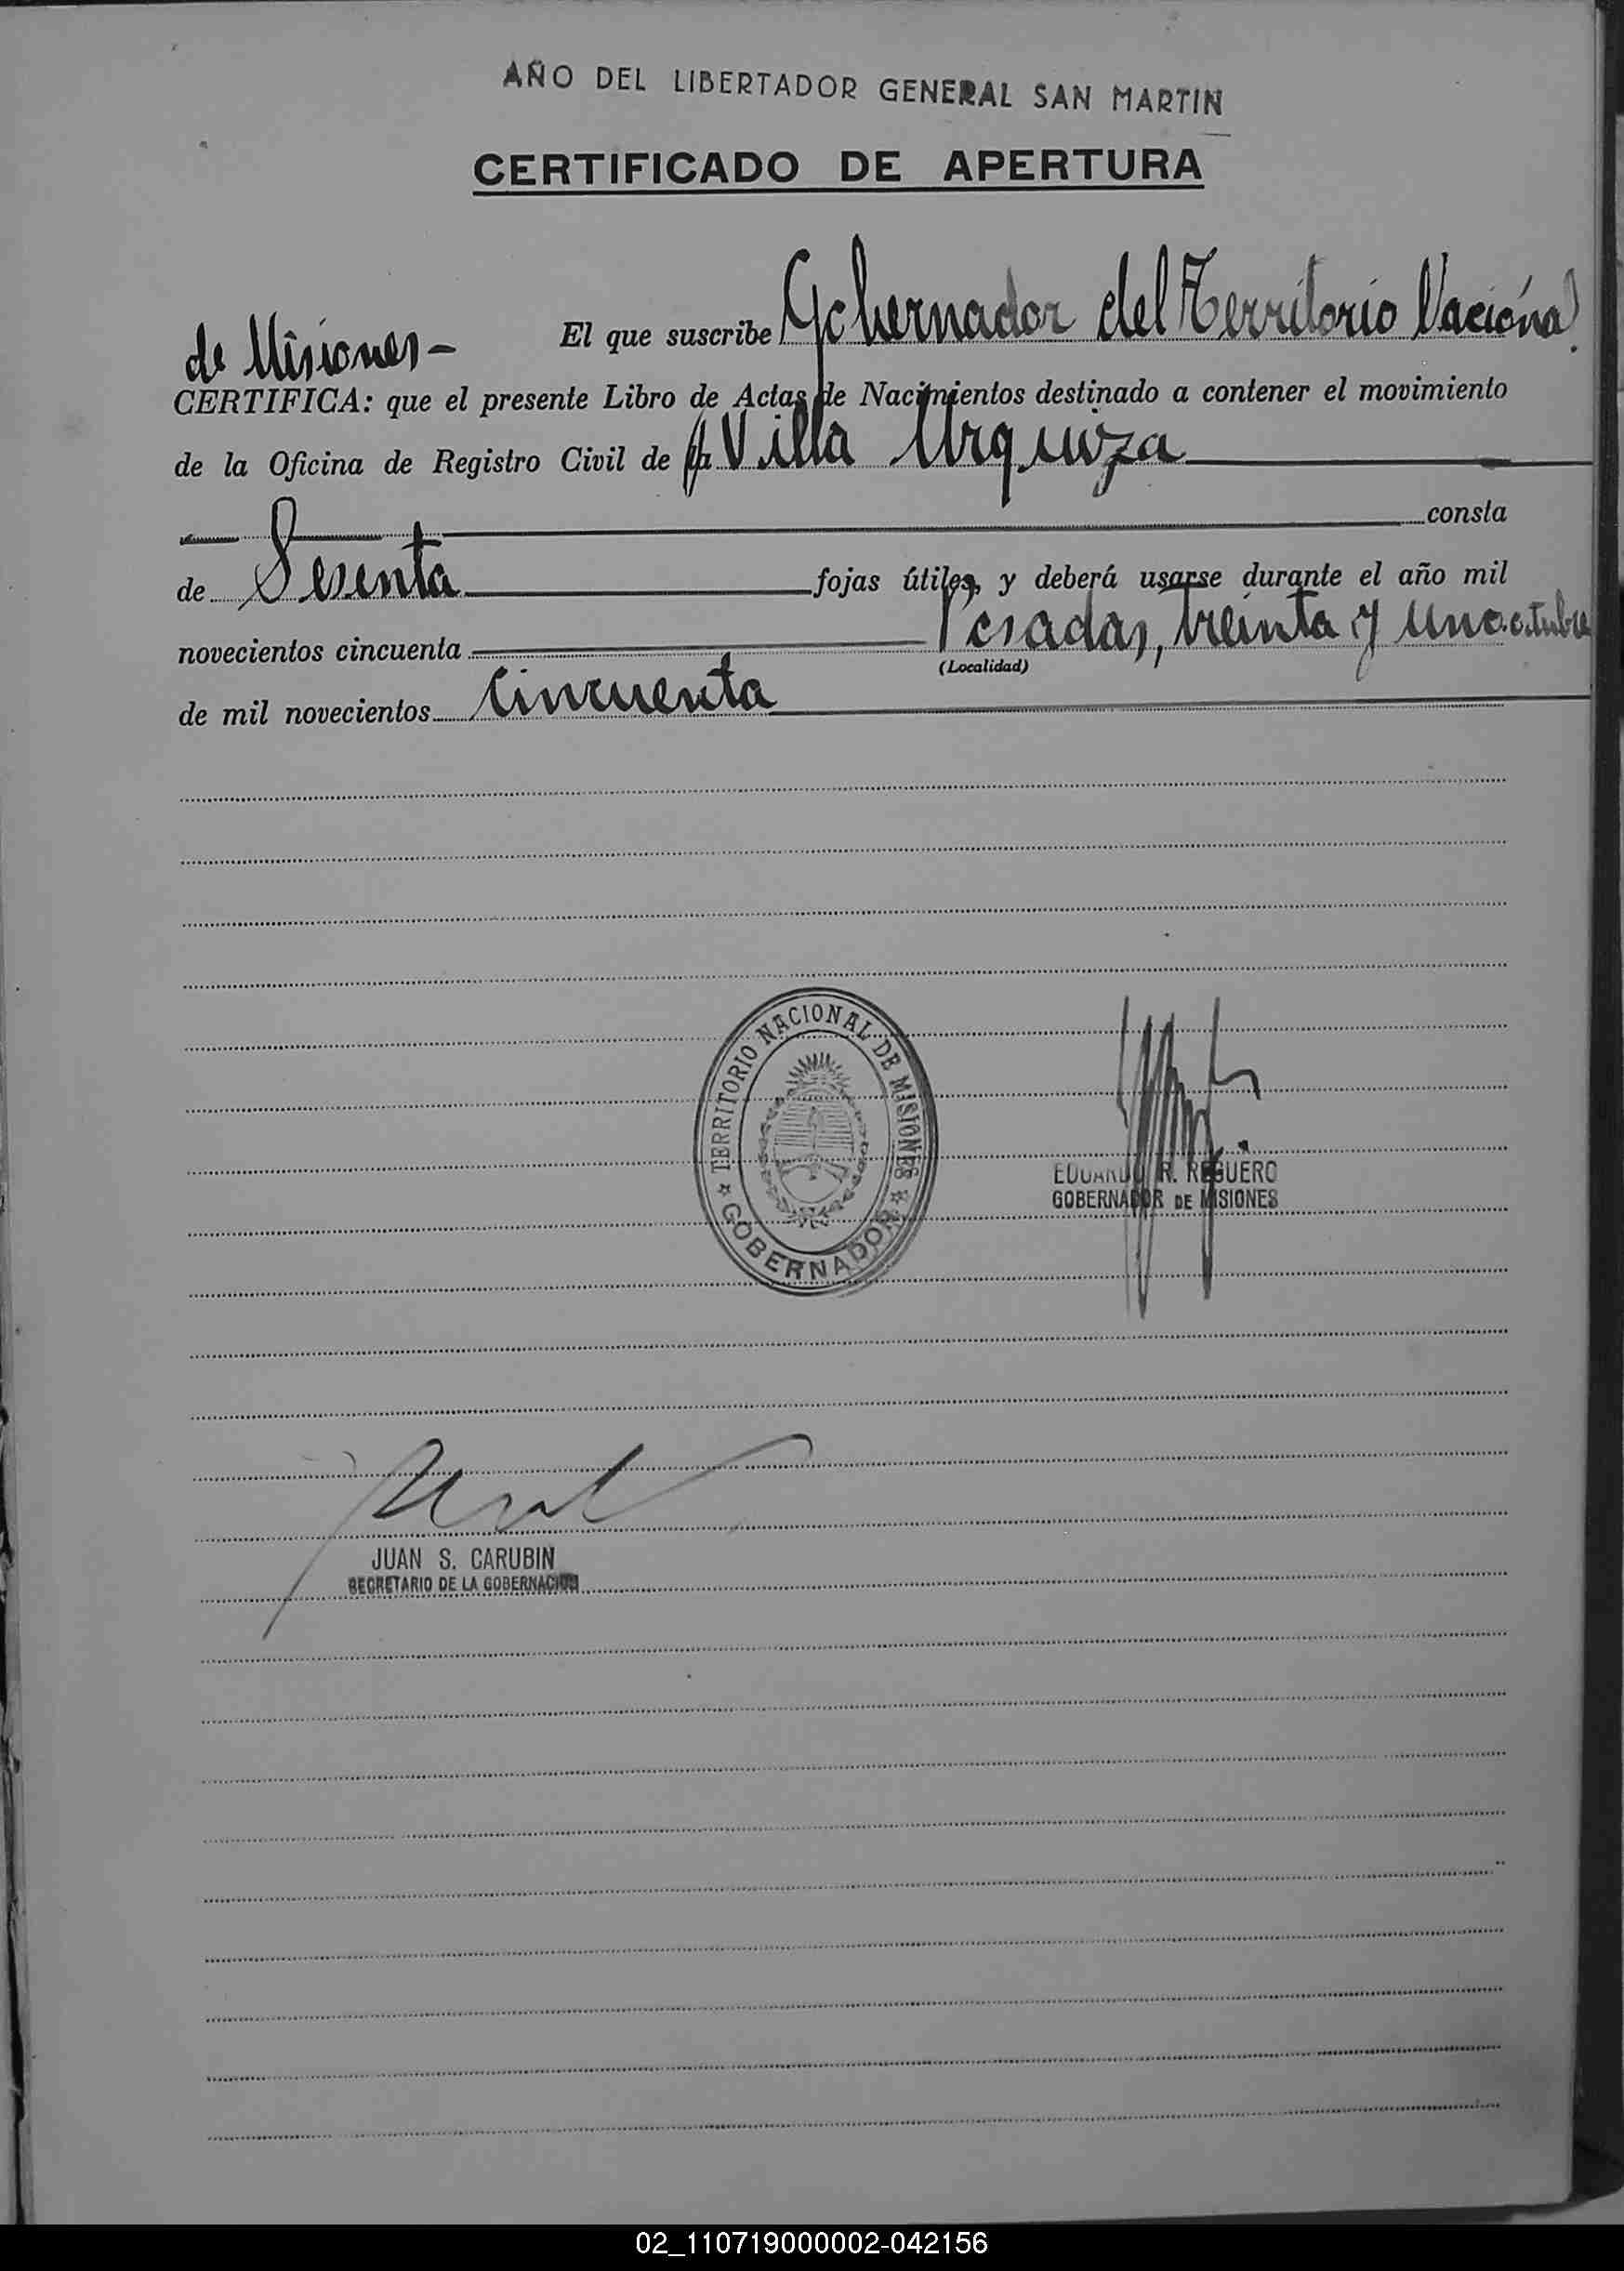 AÑO DEL LIBERTADOR GENERAL SAN MARTIN
CERTIFICADO DE APERTURA
El que suscribe Gobernador del Territorio Nacional
de Misiones-
CERTIFICA: que el presente Libro de Actas de Nacimientos destinado a contener el movimiento
de la Oficina de Registro Civil de Villa Urquiza
consta
de Sesenta fojas útiles, y deberá usarse durante el año mil
novecientos cincuenta Posadas, treinta y uno octubre
(Localidad)
de mil novecientos cincuenta
TERRITORIO NACIONAL DE MISIONES
GOBERNADOR
EDUARDO R. REGUERO
GOBERNADOR DE MISIONES
JUAN S. CARUBIN
SECRETARIO DE LA GOBERNACION
02_110719000002-042156